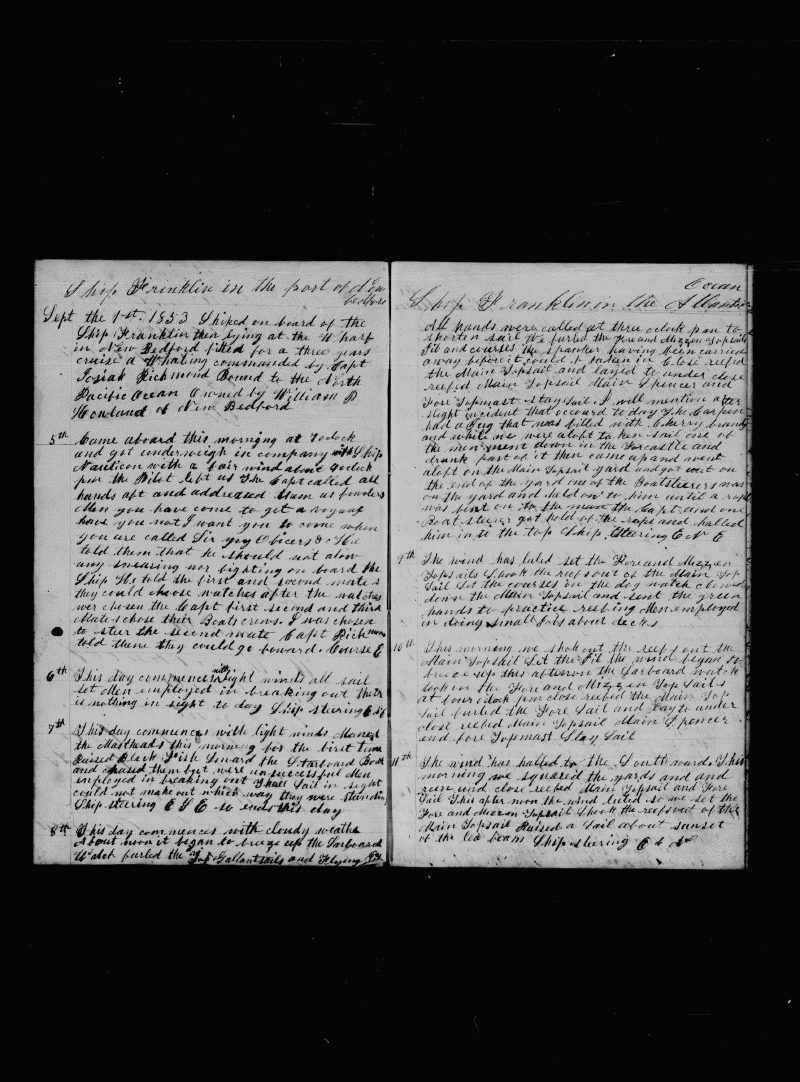 Ship Franklin in the port of New
bedford
Sept the 1st. 1853 Shiped on board of the
Ship Franklin then lying at the Wharf
in New Bedford fitted for a three years
cruise a Whaling commanded by Capt
Josiah Richmond Bound to the North
Pacific Ocean Owned by William P
Howland of New Bedford
5th Came aboard this morning at 9 oclock
and got underweigh in company with Ship
Nauticon with a fair wind about oclock
pm the Pilot left us The Capt called all
hands aft and addressed them as follows
Men you have come to get a voyage
have you not I want you to come when
you are called Sir yoy Oficers &c He
told them that he should not alow
any swearing nor fighting on board the
Ship He told the first and second mates
they could choose watches after the watches
wer chosen the Capt first second and third
Mates chose their Boats crews. I was chosen
to steer the second mate Capt Richmond
told them they could go foward. Course E
6th This day commences with light winds all sail
set Men employed in breaking out their
is nothing in sight to day Ship steering E
7th This day commences with light winds Maned
the Mastheads this morning for the first time
Raised Black Fish Lowerd the Starboard Boat
and chased them but were unsuccessful Men
employed in breaking out Sail in sight
could not make out which way they were standing
Ship steering E S E so ends this day
8th This day commences with cloudy weather
About noon it began to breeze up the Larboard
Watch furled the Top Gallantsails and Flying
Ocean
Ship Franklin in the Atlantic
All hands were called at three oclock pm to
shorten sail We furled the Fore and Mizzen Topsails
Jib and courses the spanker having been carried
away before it could be taken in Close reefed
the Main Topsail and layed to under close
reefed Main Topsail Main Spencer and
Fore Topmast Staysail. I will mention a
slight incident that occured to day The Carpenter
had a Jug that was filled with Cherry brandy
and while we were aloft taken sail one of
the men went down in the Forcastle and
drank part of it then came up and went
aloft on the Main Topsail yard and got out on
the end of the yard one of the Boatsteerers was
on the yard and held on to him until a rope
was bent on to the man the Capt and one
Boatsteerer got hold of the rope and halled
him in to the top Ship Steering E N E
9th The wind has luled set the Fore and Mizzen
Topsails Shook the reefs out of the Main Top
Sail Set the courses in the dog watch clewed
down the Main Topsail and sent the green
hands to practice reefing Men employed
in doing small Jobs about decks
10th This morning we shook out the reefs out the
Main Topsail Set the Jib the wind began to
breeze up this afternoon the Larboard watch
took in the Fore and Mizzen Top Sails
at four oclock pm close reefed the Main Top
Sail furled the Fore Sail and lay to under
close reefed Main Topsail Main Spencer
and fore Topmast Stay Sail
11th The wind has halled to the Southward. This
morning we squared the yards and and
run und close reefed Main Topsail and Fore
Sail This after noon the wind luled so we set the
Fore and Mizzen Topsail Shook the reefs out of the
Main Topsail Raised a Sail about sunset
of the lea beam Ship steering E